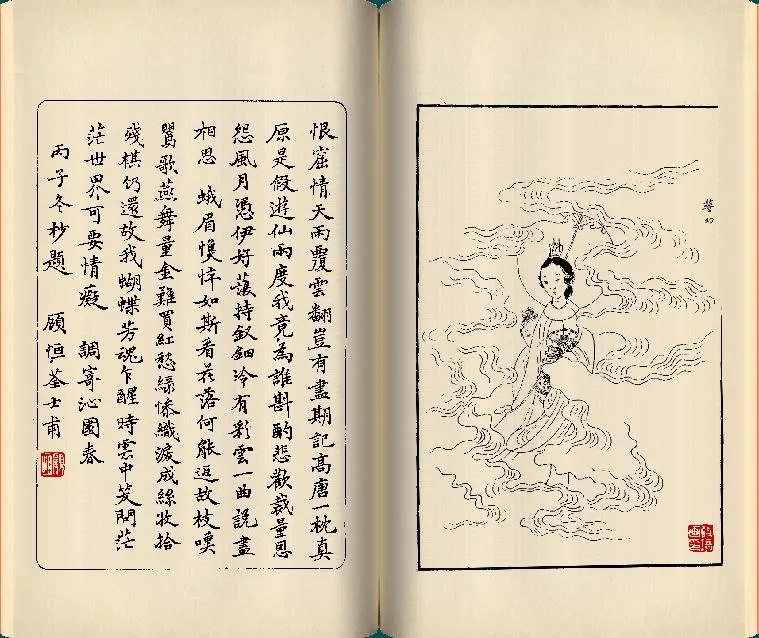 警幻
恨窟情天雨覆雲翻豈有盡期記高唐一枕真
原是假遊仙兩度我竟為誰斟酌悲歡裁量恩
怨風月憑伊好護持釵鈿冷有彩雲一曲說盡
相思 蛾眉憔悴如斯看花落何能返故枝嘆
鶯歌燕舞量金難買紅愁綠慘織淚成絲收拾
殘棋仍還故我蝴蝶芳魂乍醒時雲中笑問茫
茫世界可要情癡 調寄沁園春
丙子冬杪題 顧恒荃士甫